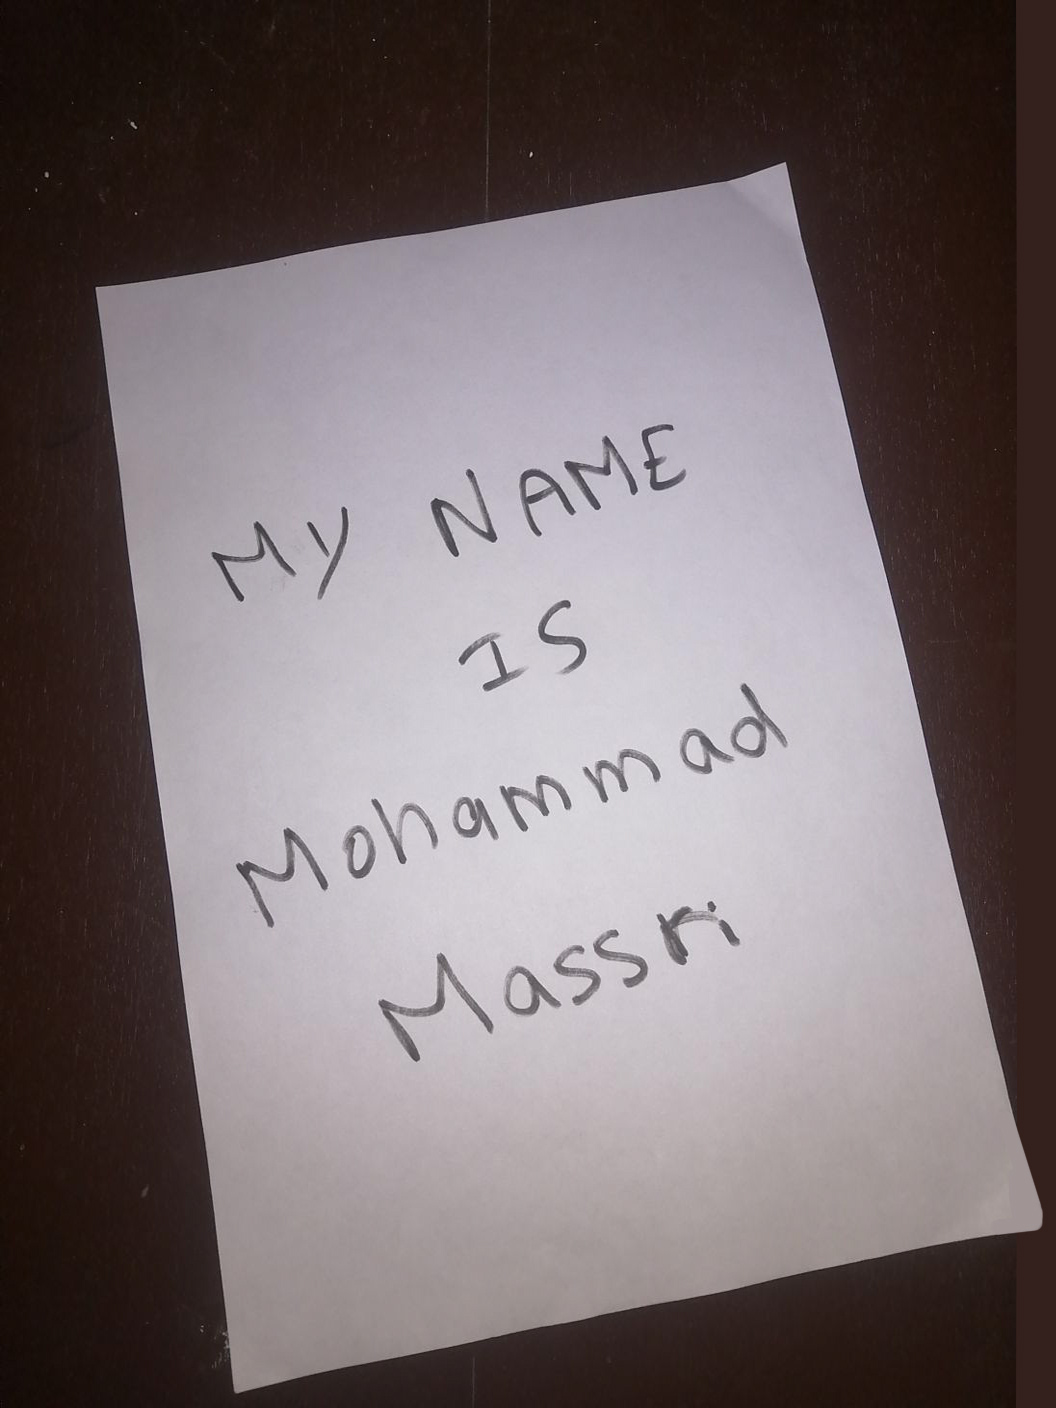 MY NAME
IS
Mohammad
Massri